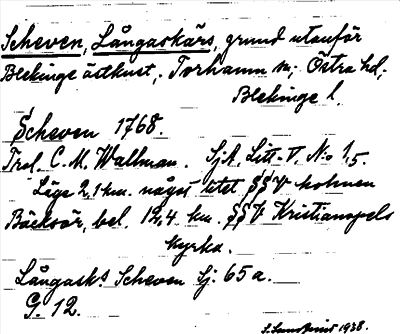 Scheven, Långaskärs, grund utanför
Blekinge östkust, Torhamn sn; Östra hd;
Blekinge l.
Scheven 1768.
Trol. C. M. Wallman. SjA. Litt. V. No 1,5.
Läge 2,1 km. något litet SSV holmen
Bäcksör, bel. 12,4 km. SSV Kristianopels
kyrka.
Långask: Scheven Sj. 65a.
G. 12.
1938.